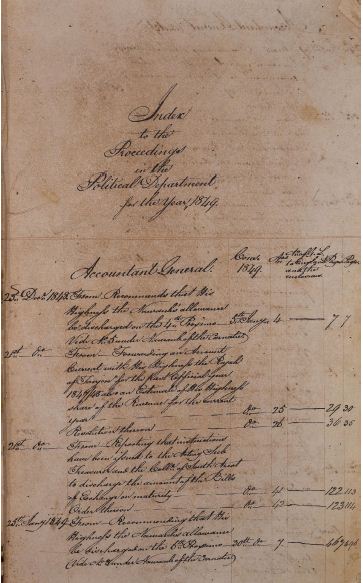 Index
to the
Proceedings
in the
Political Department
for the Year 1849.
Accountant General.
Cons.
1849.
No.
and the
Pages
23d Decr 1848. From Recommends that His
Highness the Nawab's allowance
be discharged on the 4th
5th Jany 4 7 7
Vide No. under Nawab of the Carnatic
21st Do. From Forwarding an Account
Current with His Highness the Rajah
of Tanjore for the Revenue Official year
1847/48 also an Estimate of His Highness
share of the Revenue for the current
year Do. 25 29 30
Resolution thereon Do. 26 36 35
From Reporting that instructions
have been issued to the Acting Sub
Treasurer and the Collr. of South Arcot
to discharge the amount of the Bills
of Exchange on maturity Do. 41 122.113
Order thereon Do. 42 123.114
Jany 1849 From Recommending that His
Highness the Nawab's allowance
be discharged on the 30th Do. 7
Vide No. under Nawab of the Carnatic